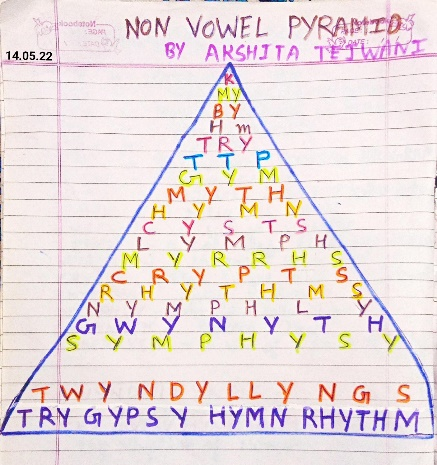 NON VOWEL PYRAMID
BY AKSHITA TEJWANI
14.05.22
K
MY
BY
Hm
TRY
TTP
GYM
MYTH
HYMN
CYSTS
LYMPH
MYRRHS
CRYPTS
RHYTHMS
NYMPHLY
GWYNYTH
SYMPHYSY
TWYNDYLLYNGS
TRY GYPSY HYMN RHYTHM